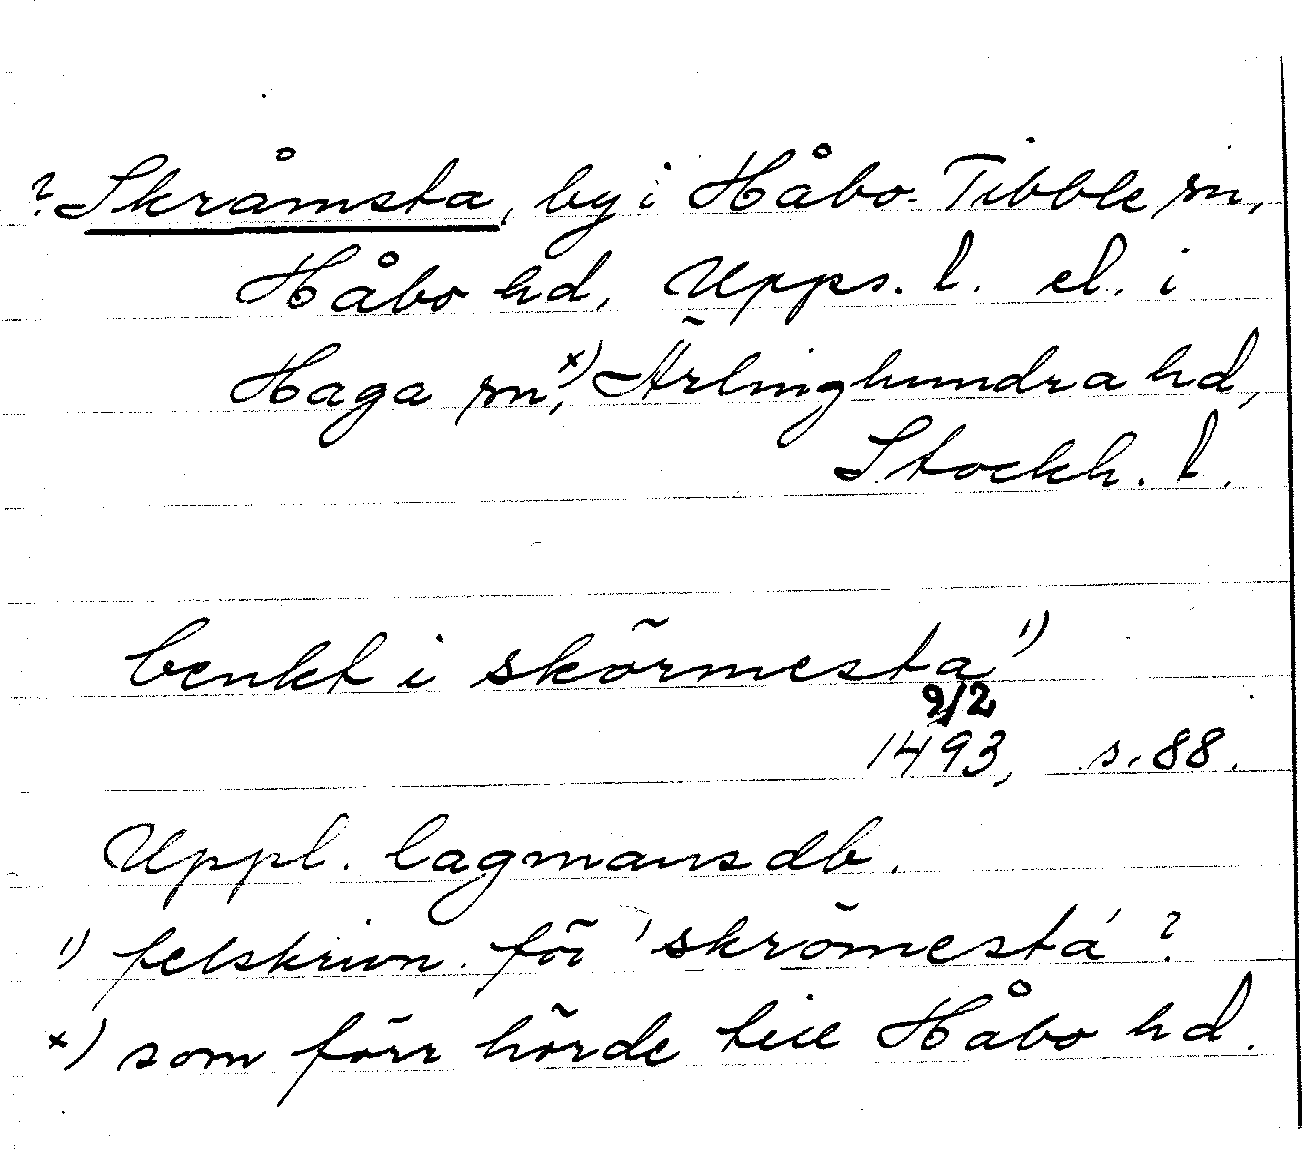 ? Skråmsta, by i Håbo-Tibble sn,
Håbo hd, Upps. l. el. i
Haga sn,x) Ärlinghundra hd,
Stockh. l.
benkt i skörmesta1)
9/2
1493, s. 88.
Uppl. lagmansdb.
1) felskrivn. för 'skrömesta'?
x) som förr hörde till Håbo hd.